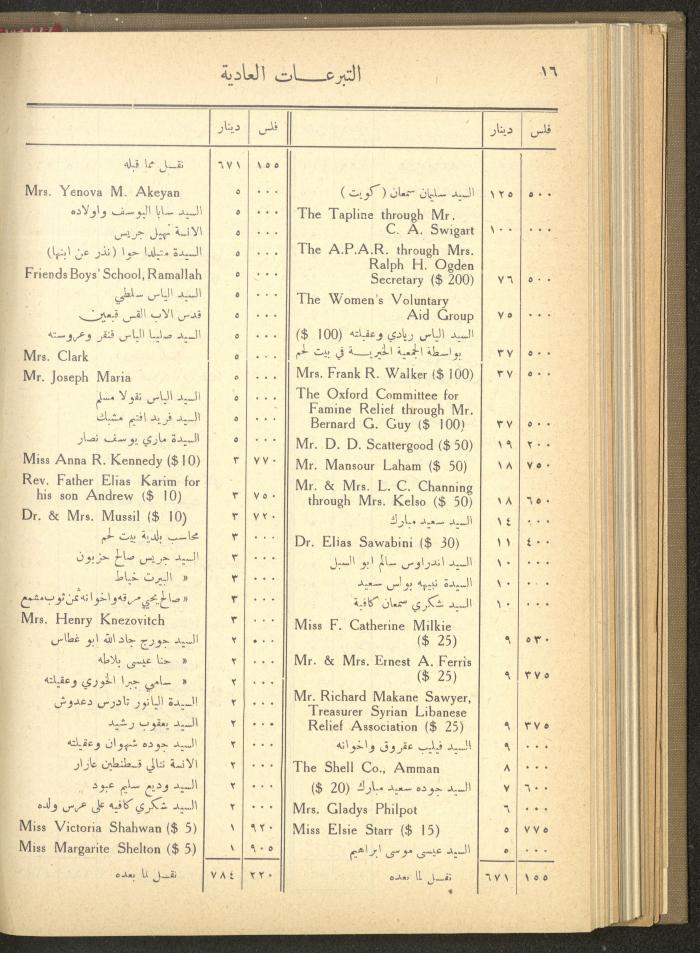 ١٦
التبرعـــات العادية
فلس دينار
السيد سليمان سمعان ( كويت ) ١٢٥ ٥٠٠
The Tapline through Mr.
C. A. Swigart ١٠٠ ٠٠٠
The A.P.A.R. through Mrs.
Ralph H. Ogden
Secretary ($ 200) ٧٦ ٥٠٠
The Women's Voluntary
Aid Group ٧٥ ٠٠٠
السيد الياس ريادي وعقيلته (100 $)
بواسطة الجمعية الخيريـــة في بيت لحم ٣٧ ٥٠٠
Mrs. Frank R. Walker ($ 100) ٣٧ ٥٠٠
The Oxford Committee for
Famine Relief through Mr.
Bernard G. Guy ($ 100) ٣٧ ٥٠٠
Mr. D. D. Scattergood ($ 50) ١٩ ٢٠٠
Mr. Mansour Laham ($ 50) ١٨ ٧٥٠
Mr. & Mrs. L. C. Channing
through Mrs. Kelso ($ 50) ١٨ ٦٥٠
السيد سعيد مبارك ١٤ ٠٠٠
Dr. Elias Sawabini ($ 30) ١١ ٤٠٠
السيد اندراوس سالم ابو السبل ١٠ ٠٠٠
السيدة نبيهه بولس سعيد ١٠ ٠٠٠
السيد شكري سمعان كافية ١٠ ٠٠٠
Miss F. Catherine Milkie
($ 25) ٩ ٥٣٠
Mr. & Mrs. Ernest A. Ferris
($ 25) ٩ ٣٧٥
Mr. Richard Makane Sawyer,
Treasurer Syrian Libanese
Relief Association ($ 25) ٩ ٣٧٥
السيد فيليب عقروق واخوانه ٩ ٠٠٠
The Shell Co., Amman ٨ ٠٠٠
السيد جوده سعيد مبارك (20 $) ٧ ٦٠٠
Mrs. Gladys Philpot ٦ ٠٠٠
Miss Elsie Starr ($ 15) ٥ ٧٧٥
السيد عيسى موسى ابراهيم ٥ ٠٠٠
نقـــل لما بعده ٦٧١ ١٥٥
فلس دينار
نقـــل مما قبله ٦٧١ ١٥٥
Mrs. Yenova M. Akeyan ٥ ٠٠٠
السيد سابا اليوسف واولاده ٥ ٠٠٠
الانسة نهيل جريس ٥ ٠٠٠
السيدة متيلدا حوا (نذر عن ابنها) ٥ ٠٠٠
Friends Boys' School, Ramallah ٥ ٠٠٠
السيد الياس سلطي ٥ ٠٠٠
قدس الاب القس قبعين ٥ ٠٠٠
السيد صليبا الياس قنقر وعروسته ٥ ٠٠٠
Mrs. Clark ٥ ٠٠٠
Mr. Joseph Maria ٥ ٠٠٠
السيد الياس نقولا مسلم ٥ ٠٠٠
السيد فريد افتيم مشبك ٥ ٠٠٠
السيدة ماري يوسف نصار ٥ ٠٠٠
Miss Anna R. Kennedy ($10) ٣ ٧٧٠
Rev. Father Elias Karim for
his son Andrew ($ 10) ٣ ٧٥٠
Dr. & Mrs. Mussil ($ 10) ٣ ٧٢٠
محاسب بلدية بيت لحم ٣ ٠٠٠
السيد جريس صالح حزبون ٣ ٠٠٠
« البيرت خياط ٣ ٠٠٠
« صالح يحيى مرقه واخوانه ثمن ثوب مشمع ٣ ٠٠٠
Mrs. Henry Knezovitch ٣ ٠٠٠
السيد جورج جاد الله ابو غطاس ٢ ٠٠٠
« حنا عيسى بلاطه ٢ ٠٠٠
« سامي جبرا الخوري وعقيلته ٢ ٠٠٠
السيدة اليانور تادرس دعدوش ٢ ٠٠٠
السيد يعقوب رشيد ٢ ٠٠٠
السيد جوده شهوان وعقيلته ٢ ٠٠٠
الانسة نتالي قسطنطين عازار ٢ ٠٠٠
السيد وديع سليم عبود ٢ ٠٠٠
السيد شكري كافيه على عرس ولده ٢ ٠٠٠
Miss Victoria Shahwan ($ 5) ١ ٩٢٠
Miss Margarite Shelton ($ 5) ١ ٩٠٥
نقـــل لما بعده ٧٨٤ ٢٢٠